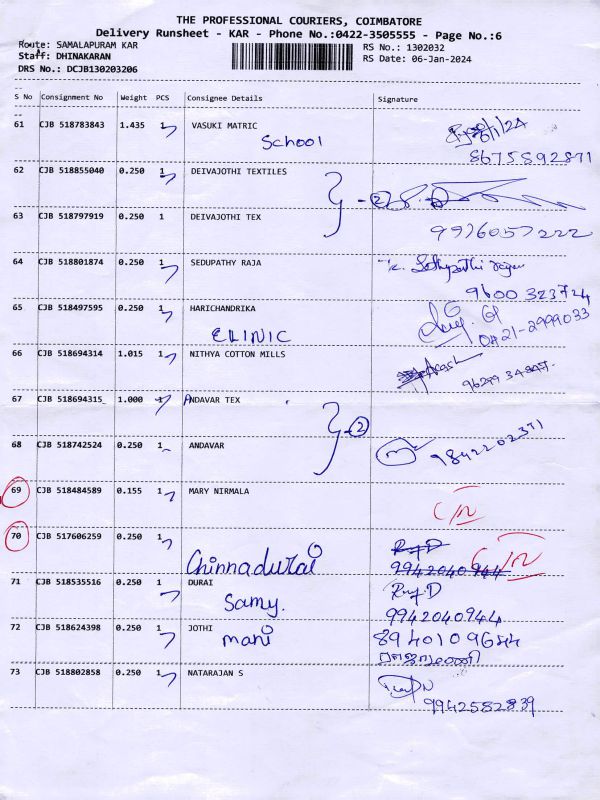 THE PROFESSIONAL COURIERS, COIMBATORE
Delivery Runsheet - KAR - Phone No.:0422-3505555 - Page No.:6
Route: SAMALAPURAM KAR RS No.: 1302032
Staff: DHINAKARAN RS Date: 06-Jan-2024
DRS No.: DCJB130203206
S No Consignment No Weight PCS Consignee Details Signature
61 CJB 518783843 1.435 1 VASUKI MATRIC
School
8675892871
62 CJB 518855040 0.250 1 DEIVAJOTHI TEXTILES
2
63 CJB 518797919 0.250 1 DEIVAJOTHI TEX
9976057222
64 CJB 518801874 0.250 1 SEDUPATHY RAJA
9600 323724
65 CJB 518497595 0.250 1 HARICHANDRIKA
CLINIC 0421-2999033
66 CJB 518694314 1.015 1 NITHYA COTTON MILLS
67 CJB 518694315 1.000 1 ANDAVAR TEX
2
68 CJB 518742524 0.250 1 ANDAVAR
9842202371
69 CJB 518484589 0.155 1 MARY NIRMALA
70 CJB 517606259 0.250 1
Chinnadurai 9942040944
71 CJB 518535516 0.250 1 DURAI
Samy.
9942040944
72 CJB 518624398 0.250 1 JOTHI
mani 8940109644
73 CJB 518802858 0.250 1 NATARAJAN S
9942582839